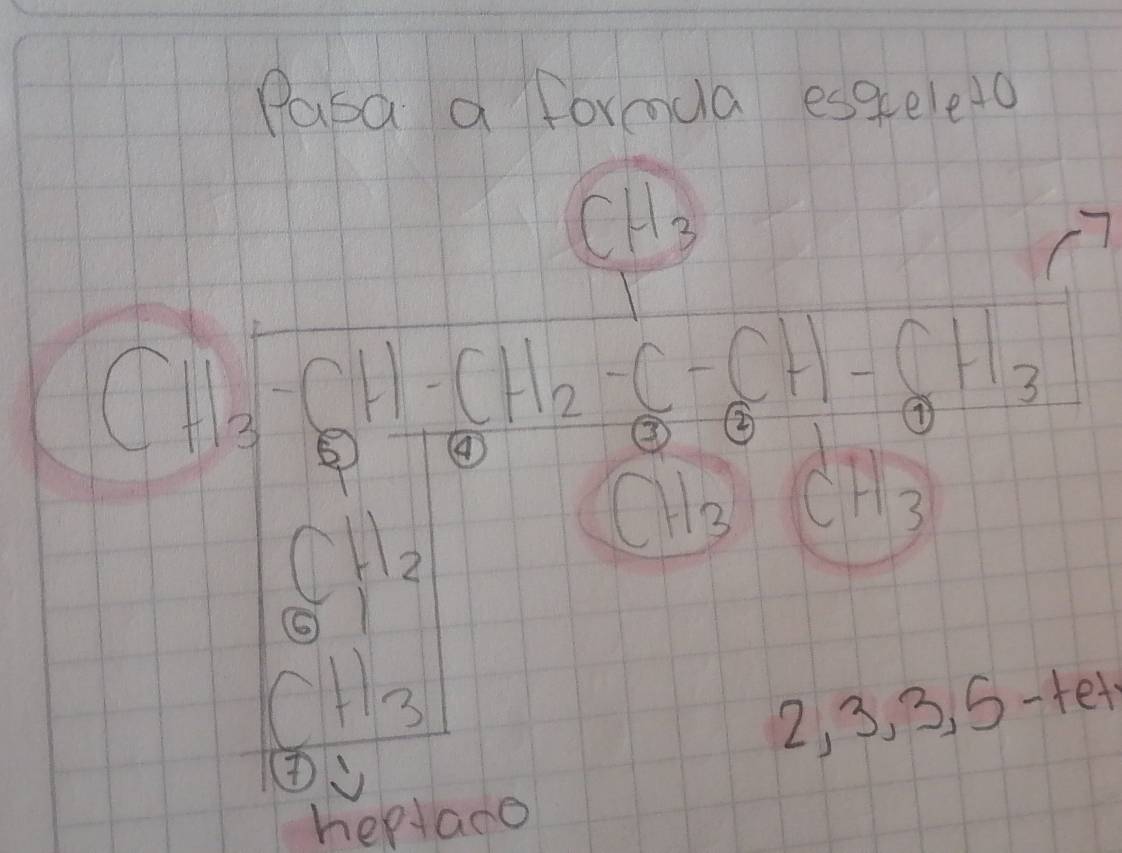 Pasa a formula esqueleto
CH3
CH3 - CH - CH2 - C - CH - CH3
5 4 3 2 1
CH2 CH3 CH3
6
CH3
2,3,3,5-tet
7
heptano